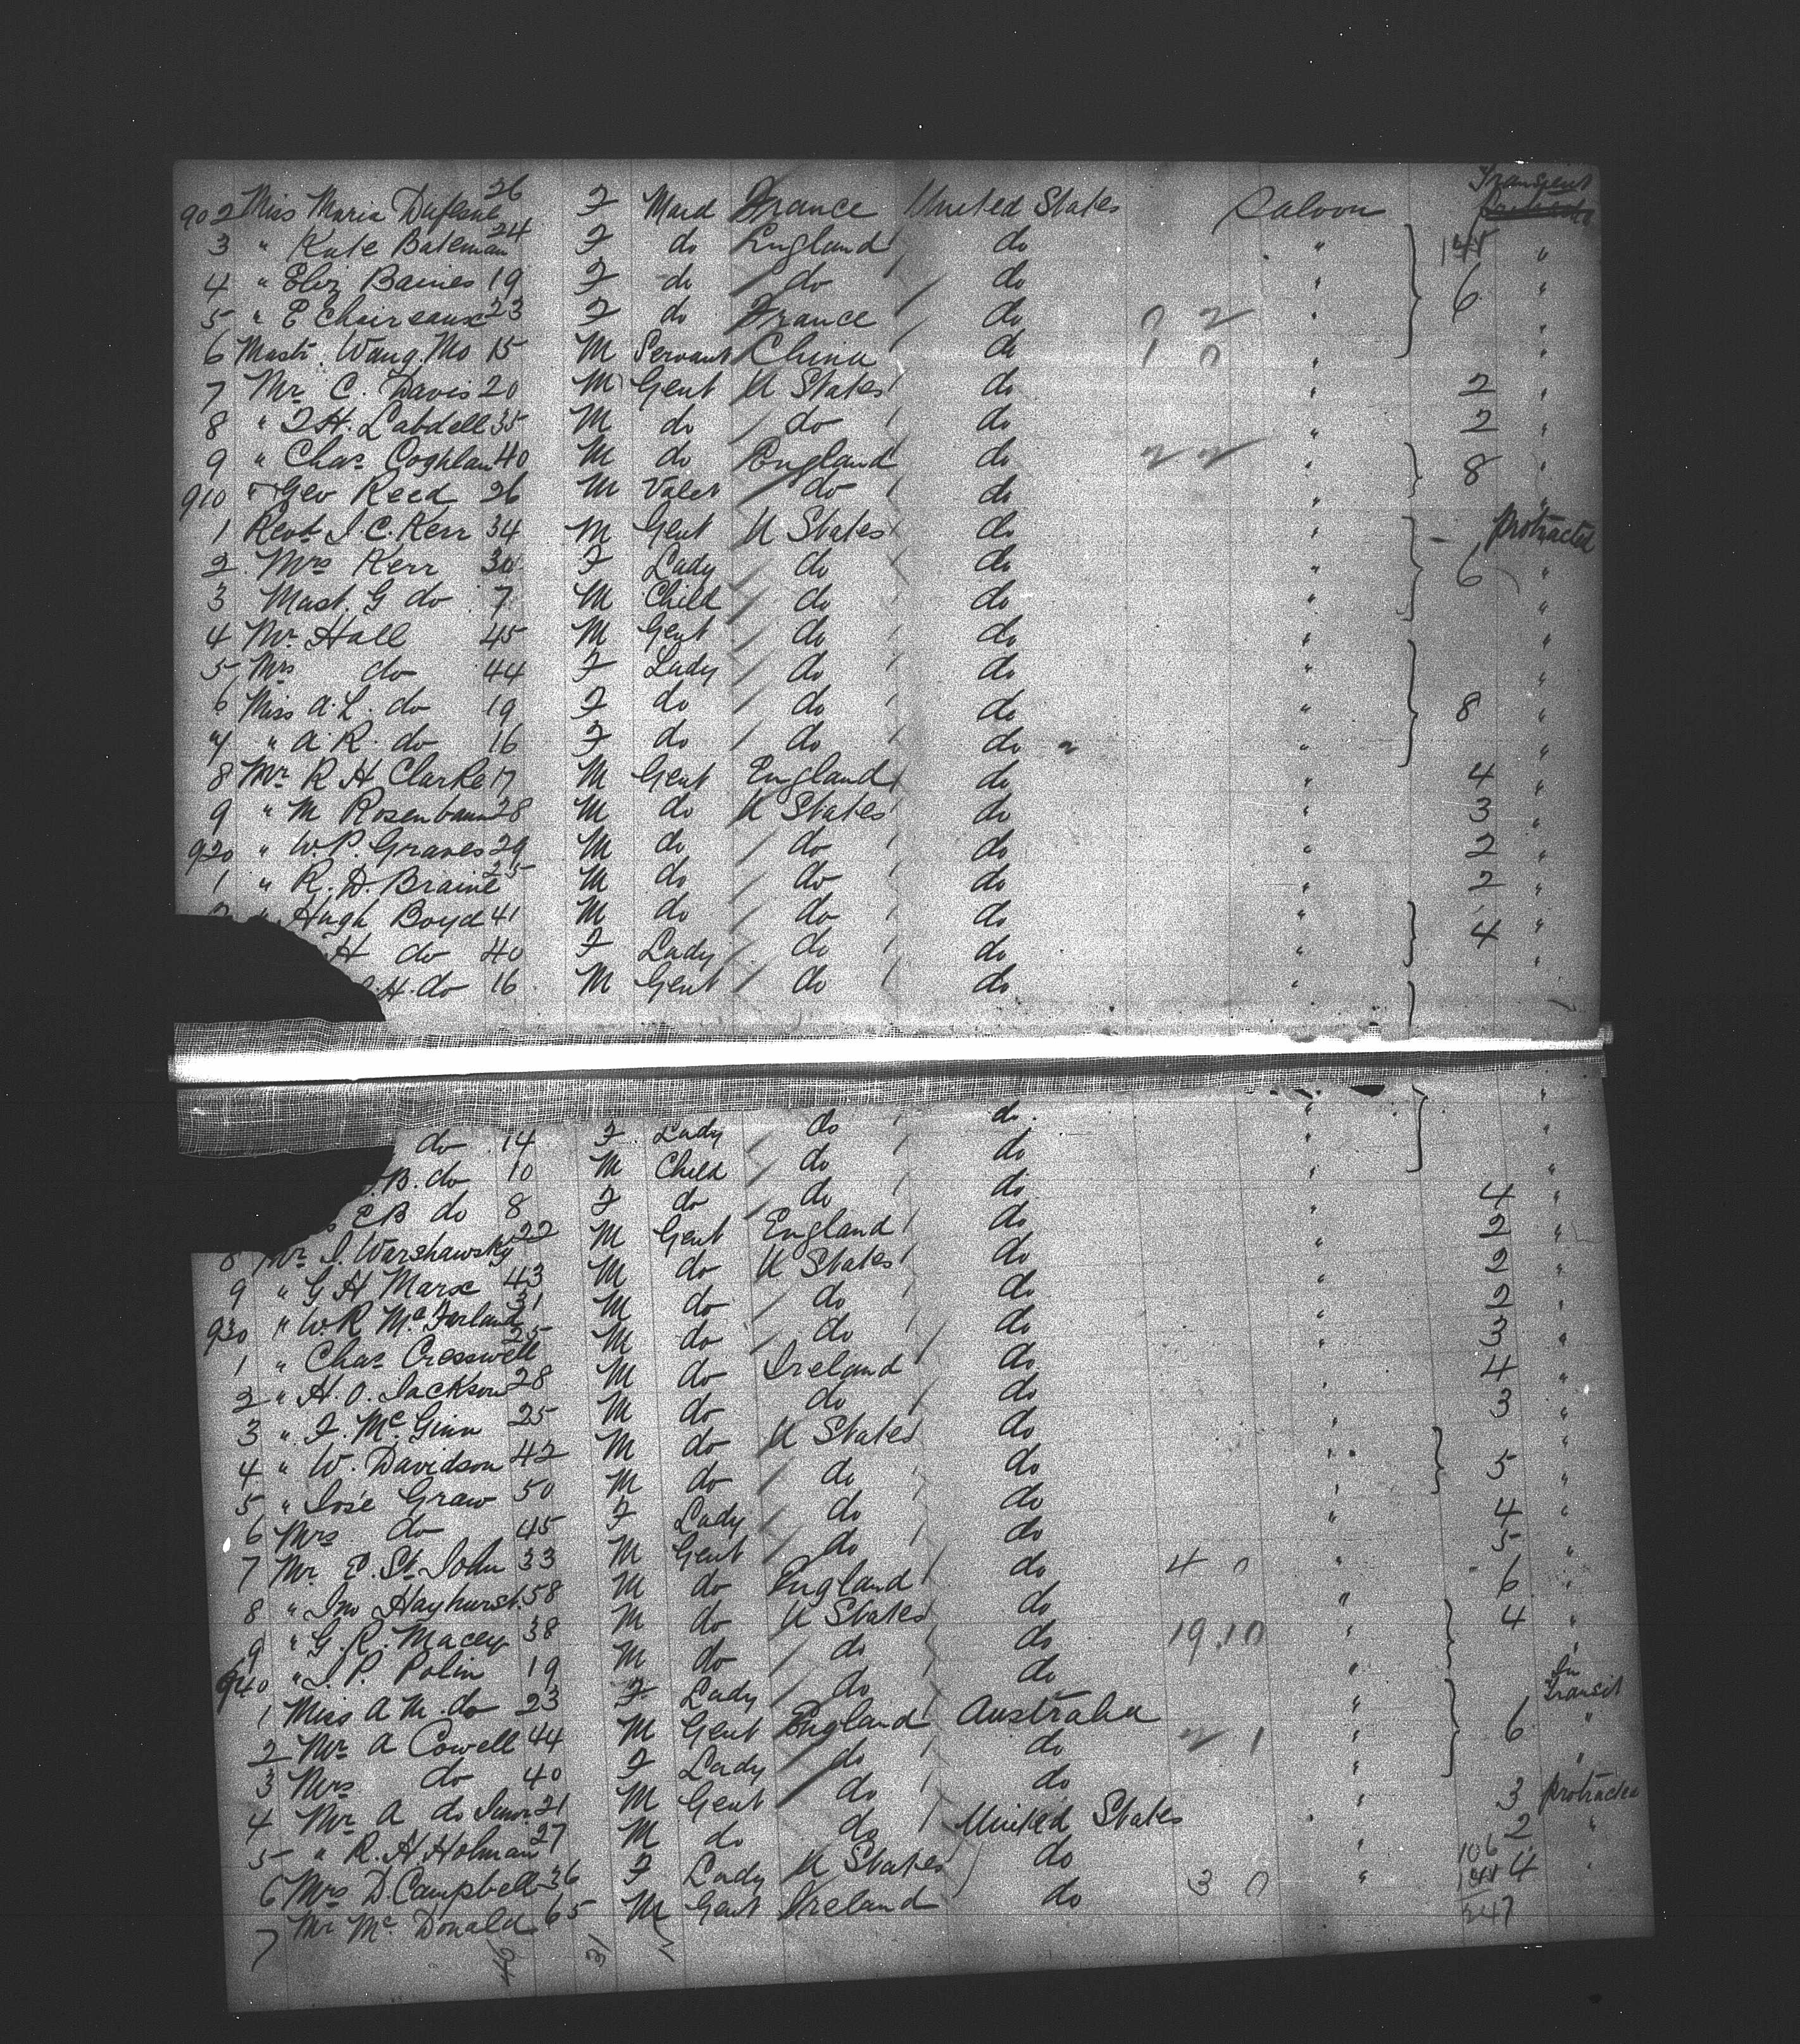 902 Miss Maria Duflene 26 F Maid France United States Saloon Transient
3 " Kate Bateman 24 F do England do " 141 "
4 " Eliz Baines 19 F do do do " 6 "
5 " E Chaireaux 23 F do France do 0 2 " "
6 Mastr. Wang Mo 15 M Servant China do 1 0 " "
7 Mr C. Davis 20 M Gent U States do " 2 "
8 " T H. Labdell 35 M do do do " 2 "
9 " Chas Coghlan 40 M do England do 2 2 " 8 "
910 " Geo Reed 26 M Valet do do " "
1 Revt J. C. Kerr 34 M Gent U States do " protracted
2 Mrs Kerr 30 F Lady do do " 6 "
3 Mast. G do 7 M Child do do " "
4 Mr. Hall 45 M Gent do do " "
5 Mrs do 44 F Lady do do " "
6 Miss A. L. do 19 F do do do " 8 "
7 " A. R. do 16 F do do do " "
8 Mr R H Clarke 17 M Gent England do " 4 "
9 " M Rosenbaum 28 M do U States do " 3 "
920 " W. P. Graves 29 M do do do " 2 "
1 " R. D. Braine 25 M do do do " 2 "
Hugh Boyd 41 M do do do " 4 "
H do 40 F Lady do do " "
H. do 16 M Gent do do "
do 14 F Lady do do. " "
B. do 10 M Child do do " "
C B do 8 F do do do " "
8 Mr I. Warshawsky 22 M Gent England do " 4 "
9 " G H Marx 43 M do U States do " 2 "
930 " W. R McFarland 31 M do do do " 2 "
1 " Chas Cresswell 25 M do do do " 2 "
2 " H. O. Jackson 28 M do Ireland do " 3 "
3 " F. McGinn 25 M do do do " 4 "
4 " W. Davidson 42 M do U States do " 3 "
5 " José Graw 50 M do do do " 5 "
6 Mrs do 45 F Lady do do " "
7 Mr. E. St. John 33 M Gent do do " 4 "
8 " Jno Hayhurst. 58 M do England do 4 0 " 5 "
9 " G. R. Macey 38 M do U States do " 6 "
940 " J. P. Polin 19 M do do do 19 10 " 4 "
1 Miss A M. do 23 F Lady do do " "
2 Mr A Cowell 44 M Gent England Australia " In Transit
3 Mrs do 40 F Lady do do 2 1 " 6 "
4 Mr A do Junr 21 M Gent do do " "
5 " R. H Holman 27 M do do United States " 3 protracted
6 Mrs D. Campbell 36 F Lady U States do " 2 "
7 Mr McDonald 65 M Gent Ireland do 3 0 " 4 "
106
141
247
42 31